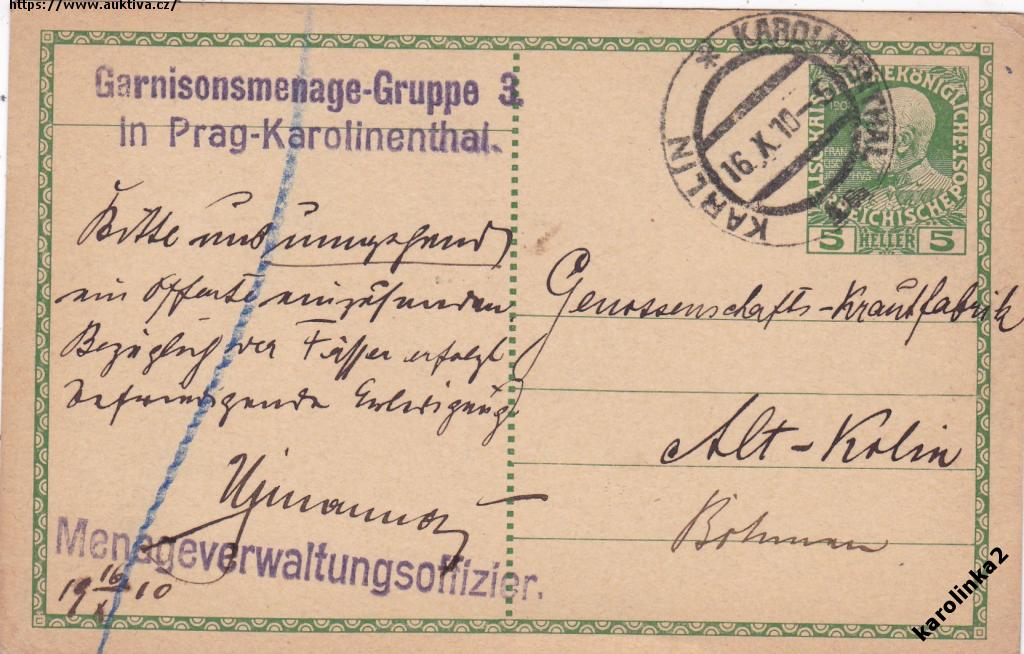 https://www.auktiva.cz/
Garnisonsmenage-Gruppe 3.
in Prag-Karolinenthal.
Bitte uns umgehend
ein Offerte einzusenden
Bezüglich der Fässer erfolgt
befriedigende Erledigung
Menageverwaltungsoffizier.
19 16/X 10
* KAROLINENTHAL
KARLIN
16.X.10
5 HELLER 5
Genossenschafts-Krautfabrik
Alt-Kolin
Böhmen
karolinka2